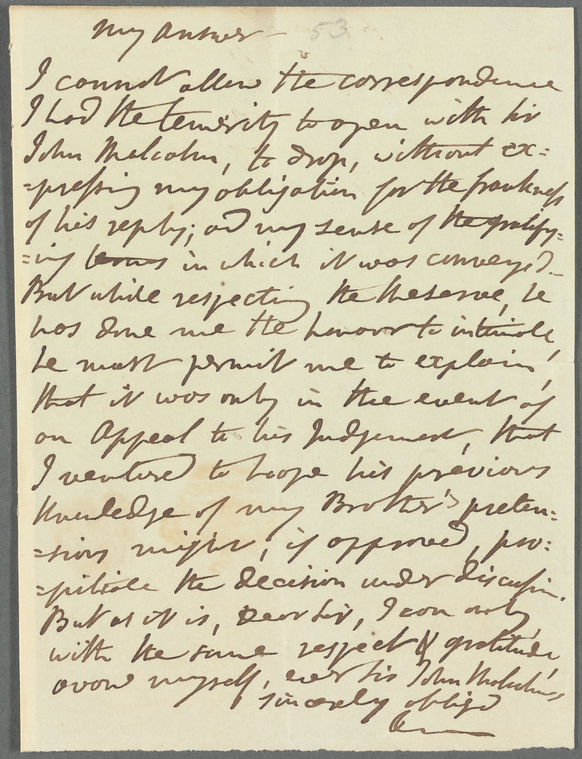 My Answer - 53.
I cannot allow the correspondence
I had the temerity to open with Sir
John Malcolm, to drop, without ex=
=pressing my obligation for the frankness
of his reply; and my sense of the gratify=
=ing terms in which it was conveyed.
But while respecting the Reserve, he
has done me the honour to intimate,
he must permit me to explain,
that it was only in the event of
an Appeal to his Judgement, that
I ventured to hope his previous
knowledge of my Brother's preten=
=sions might, if approved, pro=
=pitiate the decision under discussion.
But as it is, Dear Sir, I can only,
with the same respect & gratitude,
avow myself, ever Sir John Malcolm's
sincerely obliged